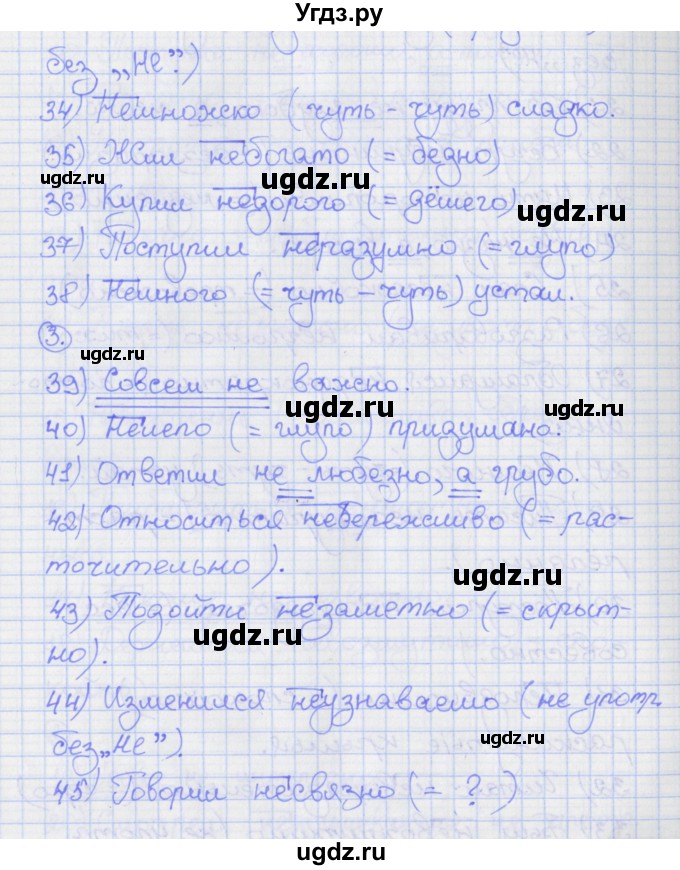 Угдз.ру
без „Не")
34) Немножко (чуть - чуть) сладко.
35) Жил небогато (= бедно)
ugdz.ru
ugdz.ru
36) Купил недорого (= дёшего)
ugdz.ru
ugdz.ru
37) Поступил неразумно (= глупо)
38) Немного (= чуть - чуть) устал.
3.
ugdz.ru
39) Совсем не важно.
ugdz.ru
ugdz.ru
40) Нелепо (= глупо) придумано.
41) Ответил не любезно, а грубо.
42) Относиться небережливо (= рас-
точительно).
ugdz.ru
43) Подойти незаметно (= скрыт-
ugdz.ru
но).
44) Изменился неузнаваемо (не употр.
ugdz.ru
без „Не").
ugdz.ru
45) Говорил несвязно (= ?)
ugdz.ru